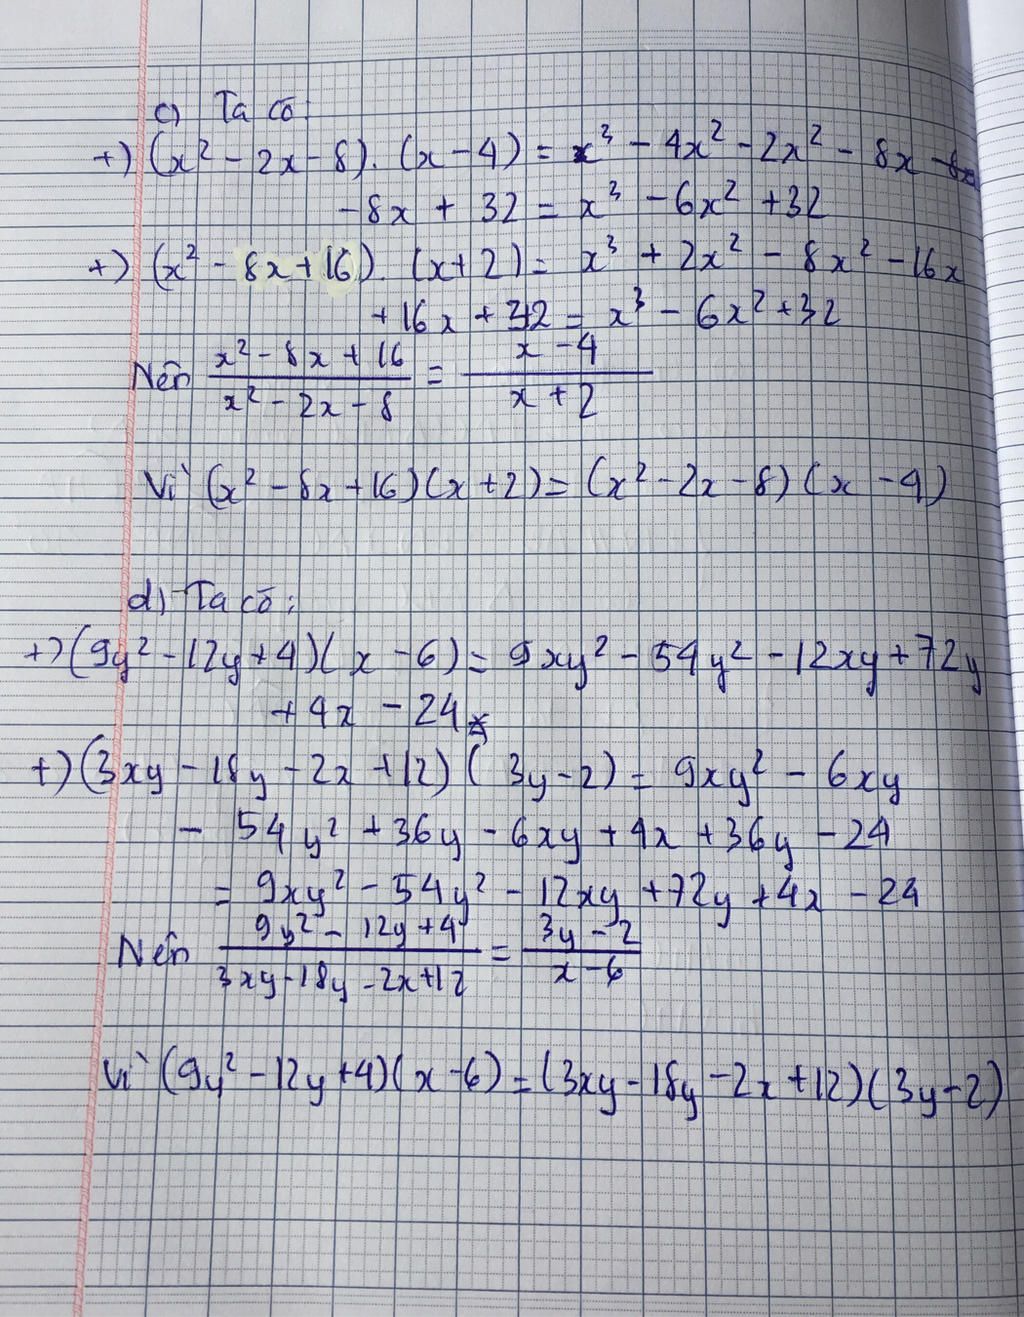 c) Ta có:
+) (x² - 2x - 8). (x - 4) = x³ - 4x² - 2x² - 8x
- 8x + 32 = x³ - 6x² + 32
+) (x² - 8x + 16). (x + 2) = x³ + 2x² - 8x² - 16x
+ 16x + 32 = x³ - 6x² + 32
Nên (x² - 8x + 16)/(x² - 2x - 8) = (x - 4)/(x + 2)
Vì (x² - 8x + 16)(x + 2) = (x² - 2x - 8)(x - 4)
d) Ta có:
+) (9y² - 12y + 4)(x - 6) = 9xy² - 54y² - 12xy + 72y
+ 4x - 24
+) (3xy - 18y - 2x + 12)(3y - 2) = 9xy² - 6xy
- 54y² + 36y - 6xy + 4x + 36y - 24
= 9xy² - 54y² - 12xy + 72y + 4x - 24
Nên (9y² - 12y + 4)/(3xy - 18y - 2x + 12) = (3y - 2)/(x - 6)
Vì (9y² - 12y + 4)(x - 6) = (3xy - 18y - 2x + 12)(3y - 2)